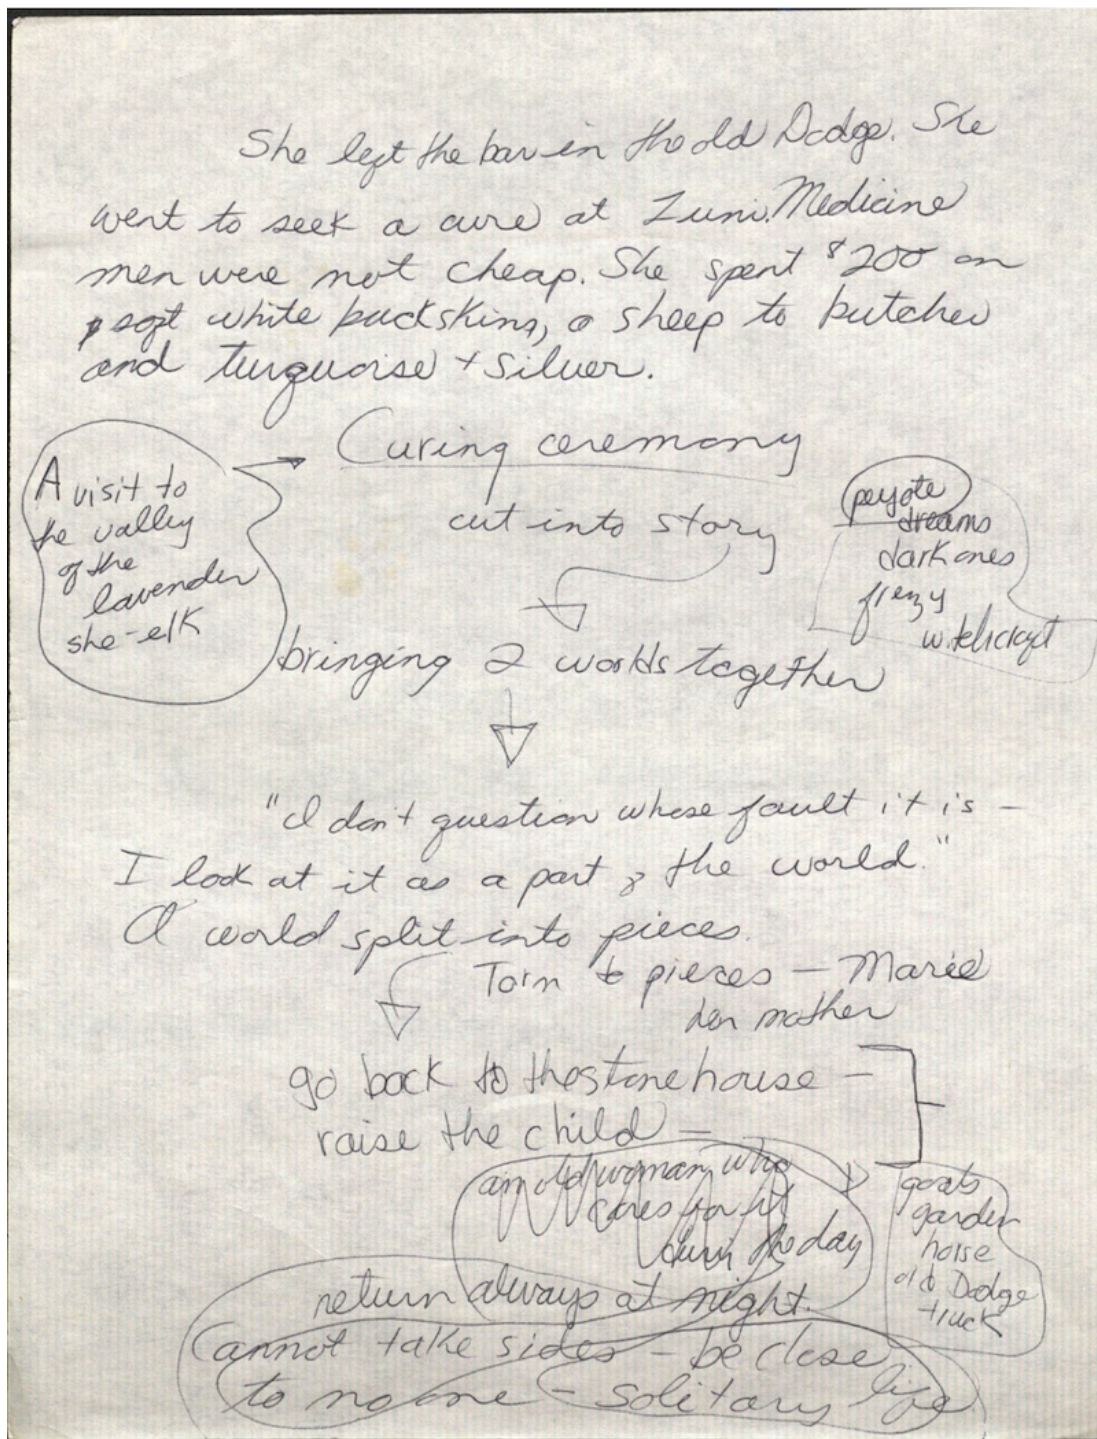 She left the bar in the old Dodge. She
went to seek a cure at Zuni. Medicine
men were not cheap. She spent $200 on
soft white buckskins, a sheep to butcher
and turquoise + silver.
Curing ceremony
A visit to
the valley
of the
lavender
she-elk
cut into story
peyote
dreams
dark ones
frenzy
witchcraft
bringing 2 worlds together
"I don't question whose fault it is –
I look at it as a part of the world."
A world split into pieces.
Torn to pieces – Marie
her mother
go back to the stone house –
raise the child –
an old woman who
cares for it
durin the day
goats
garden
horse
old Dodge
truck
return always at night.
Cannot take sides – be close
to no one – solitary life